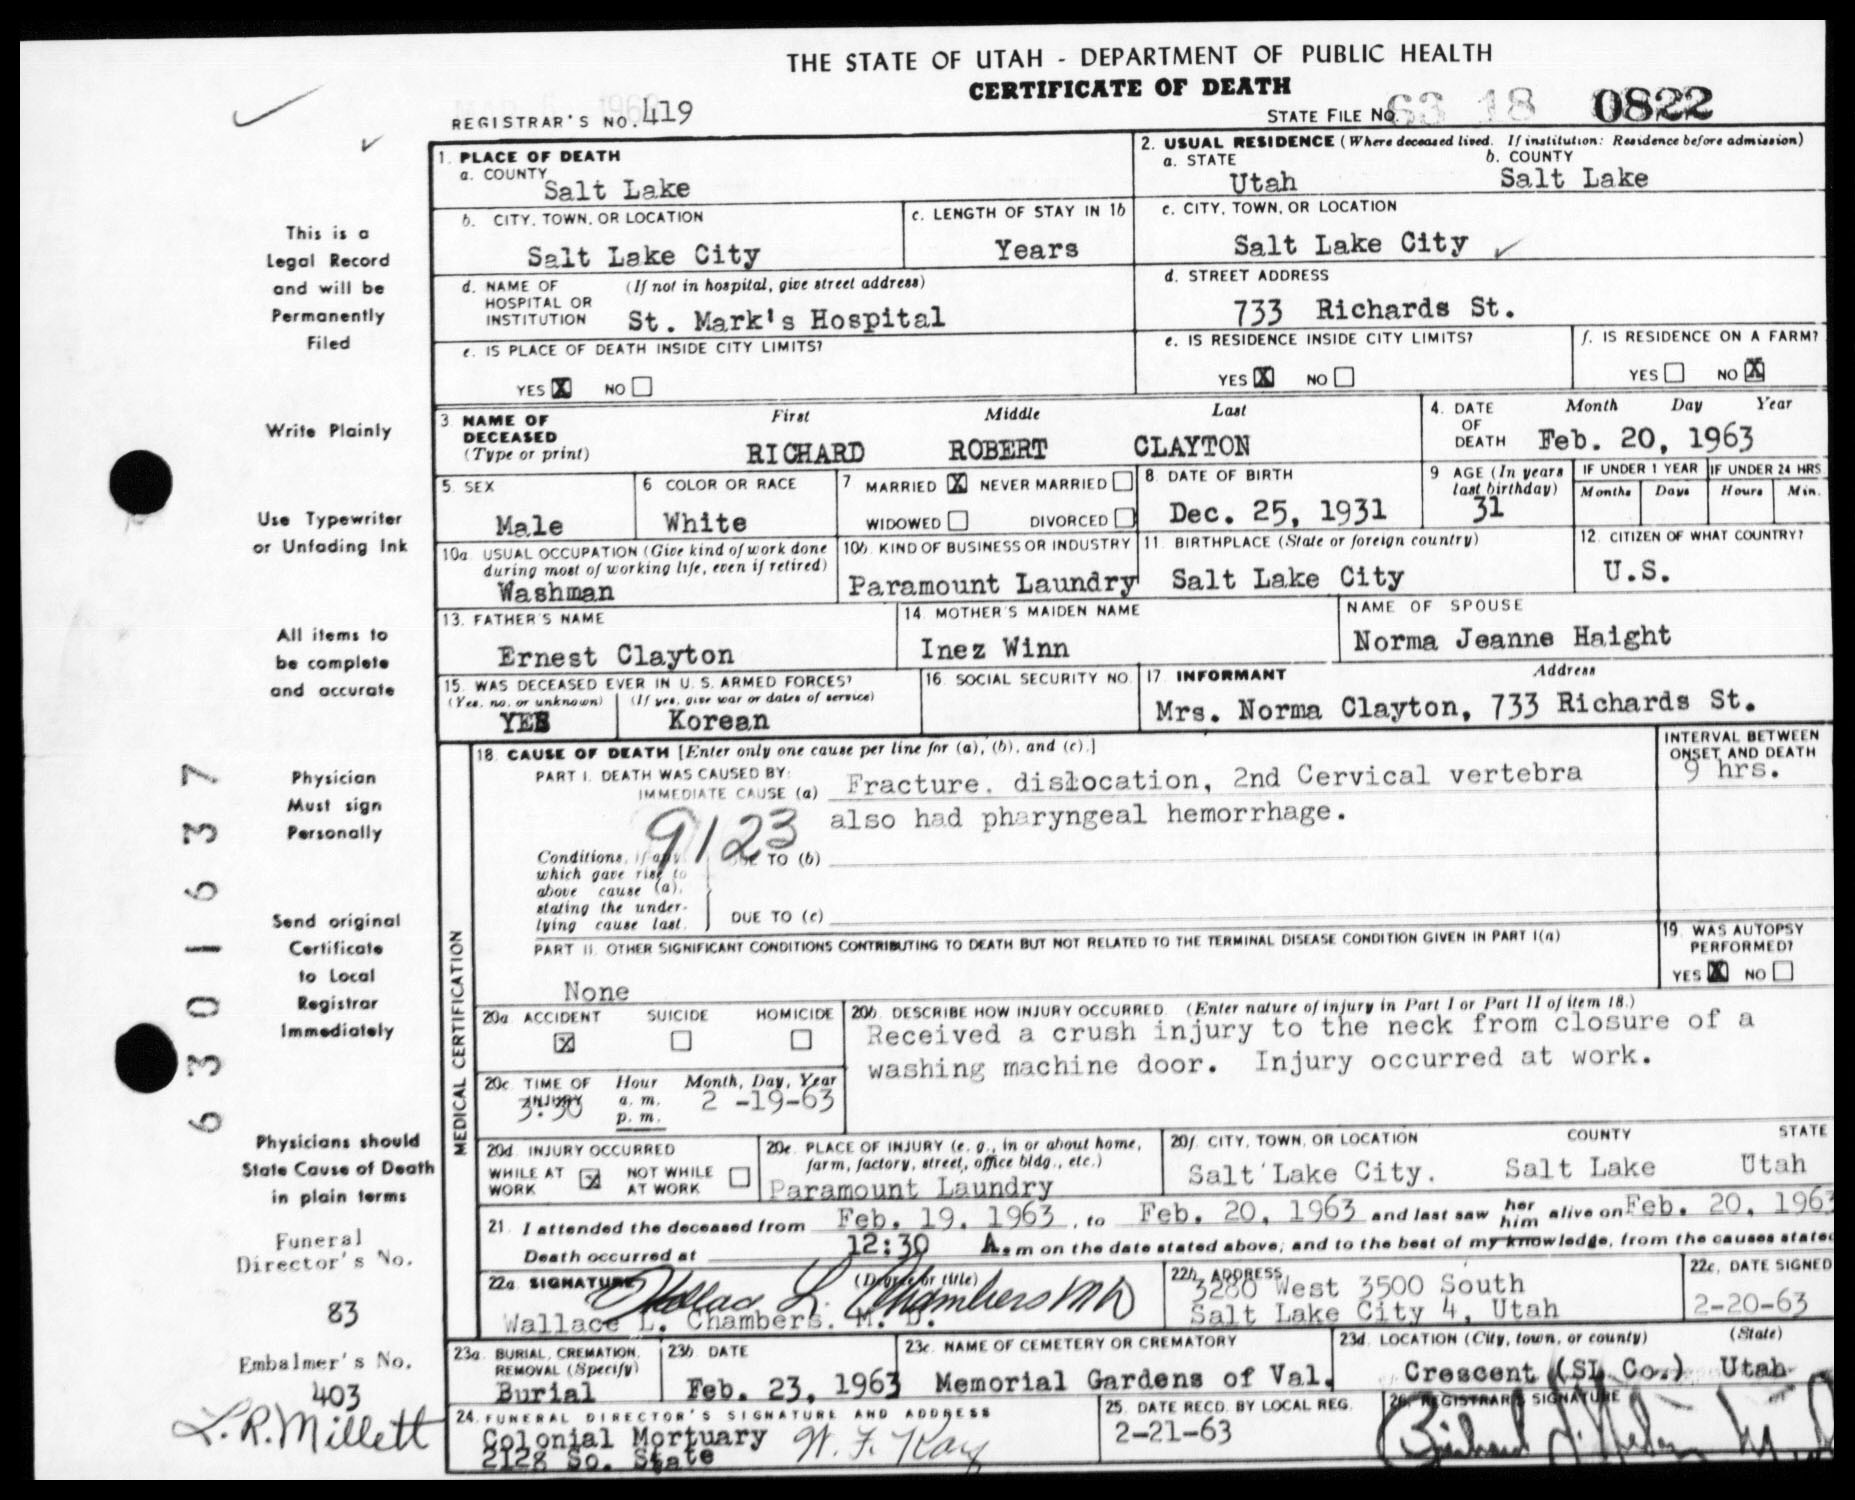 THE STATE OF UTAH - DEPARTMENT OF PUBLIC HEALTH
CERTIFICATE OF DEATH
REGISTRAR'S NO. 419
STATE FILE NO. 63 18 0822
1. PLACE OF DEATH
a. COUNTY
Salt Lake
2. USUAL RESIDENCE (Where deceased lived. If institution: Residence before admission)
a. STATE b. COUNTY
Utah Salt Lake
b. CITY, TOWN, OR LOCATION
Salt Lake City
c. LENGTH OF STAY IN 1b
Years
c. CITY, TOWN, OR LOCATION
Salt Lake City
d. NAME OF HOSPITAL OR INSTITUTION (If not in hospital, give street address)
St. Mark's Hospital
d. STREET ADDRESS
733 Richards St.
e. IS PLACE OF DEATH INSIDE CITY LIMITS?
YES X NO
e. IS RESIDENCE INSIDE CITY LIMITS?
YES X NO
f. IS RESIDENCE ON A FARM?
YES NO X
3. NAME OF DECEASED (Type or print)
First Middle Last
RICHARD ROBERT CLAYTON
4. DATE OF DEATH
Month Day Year
Feb. 20, 1963
5. SEX
Male
6 COLOR OR RACE
White
7 MARRIED X NEVER MARRIED
WIDOWED DIVORCED
8. DATE OF BIRTH
Dec. 25, 1931
9 AGE (In years last birthday)
31
IF UNDER 1 YEAR
Months Days
IF UNDER 24 HRS.
Hours Min.
10a. USUAL OCCUPATION (Give kind of work done
during most of working life, even if retired)
Washman
10b. KIND OF BUSINESS OR INDUSTRY
Paramount Laundry
11. BIRTHPLACE (State or foreign country)
Salt Lake City
12. CITIZEN OF WHAT COUNTRY?
U.S.
13. FATHER'S NAME
Ernest Clayton
14. MOTHER'S MAIDEN NAME
Inez Winn
NAME OF SPOUSE
Norma Jeanne Haight
15. WAS DECEASED EVER IN U. S. ARMED FORCES?
(Yes, no, or unknown) (If yes, give war or dates of service)
YES Korean
16. SOCIAL SECURITY NO.
17. INFORMANT Address
Mrs. Norma Clayton, 733 Richards St.
MEDICAL CERTIFICATION
18. CAUSE OF DEATH [Enter only one cause per line for (a), (b), and (c).]
PART I. DEATH WAS CAUSED BY:
IMMEDIATE CAUSE (a) Fracture, dislocation, 2nd Cervical vertebra
also had pharyngeal hemorrhage.
INTERVAL BETWEEN ONSET AND DEATH
9 hrs.
9123
Conditions, if any,
which gave rise to
above cause (a),
stating the under-
lying cause last.
DUE TO (b)
DUE TO (c)
PART II. OTHER SIGNIFICANT CONDITIONS CONTRIBUTING TO DEATH BUT NOT RELATED TO THE TERMINAL DISEASE CONDITION GIVEN IN PART I(a)
None
19. WAS AUTOPSY PERFORMED?
YES X NO
20a. ACCIDENT SUICIDE HOMICIDE
X
20b. DESCRIBE HOW INJURY OCCURRED. (Enter nature of injury in Part I or Part II of item 18.)
Received a crush injury to the neck from closure of a
washing machine door. Injury occurred at work.
20c. TIME OF INJURY Hour Month, Day, Year
3:30 a. m. p. m. 2 -19-63
20d. INJURY OCCURRED
WHILE AT WORK X NOT WHILE AT WORK
20e. PLACE OF INJURY (e. g., in or about home,
farm, factory, street, office bldg., etc.)
Paramount Laundry
20f. CITY, TOWN, OR LOCATION COUNTY STATE
Salt Lake City. Salt Lake Utah
21. I attended the deceased from Feb. 19, 1963, to Feb. 20, 1963 and last saw her him alive on Feb. 20, 1963
Death occurred at 12:30 A. m on the date stated above; and to the best of my knowledge, from the causes stated
22a. SIGNATURE (Degree or title)
Wallace L. Chambers MD
Wallace L. Chambers. M. D.
22b. ADDRESS
3280 West 3500 South
Salt Lake City 4, Utah
22c. DATE SIGNED
2-20-63
23a. BURIAL, CREMATION, REMOVAL (Specify)
Burial
23b. DATE
Feb. 23, 1963
23c. NAME OF CEMETERY OR CREMATORY
Memorial Gardens of Val.
23d. LOCATION (City, town, or county) (State)
Crescent (SL Co.) Utah
24. FUNERAL DIRECTOR'S SIGNATURE AND ADDRESS
Colonial Mortuary
2128 So. State
25. DATE RECD. BY LOCAL REG.
2-21-63
26. REGISTRAR'S SIGNATURE
This is a
Legal Record
and will be
Permanently
Filed
Write Plainly
Use Typewriter
or Unfading Ink
All items to
be complete
and accurate
Physician
Must sign
Personally
Send original
Certificate
to Local
Registrar
Immediately
Physicians should
State Cause of Death
in plain terms
Funeral
Director's No.
83
Embalmer's No.
403
L. R. Millett
6301637